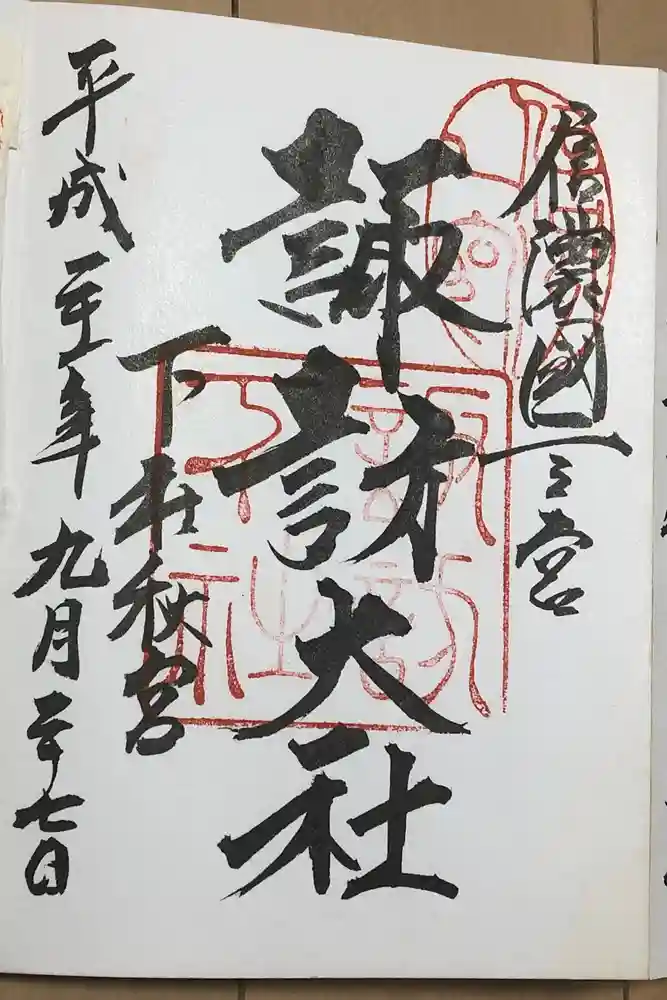 信濃國一之宮
諏訪大社
下社秋宮
平成二十一年九月二十七日
諏訪
下社